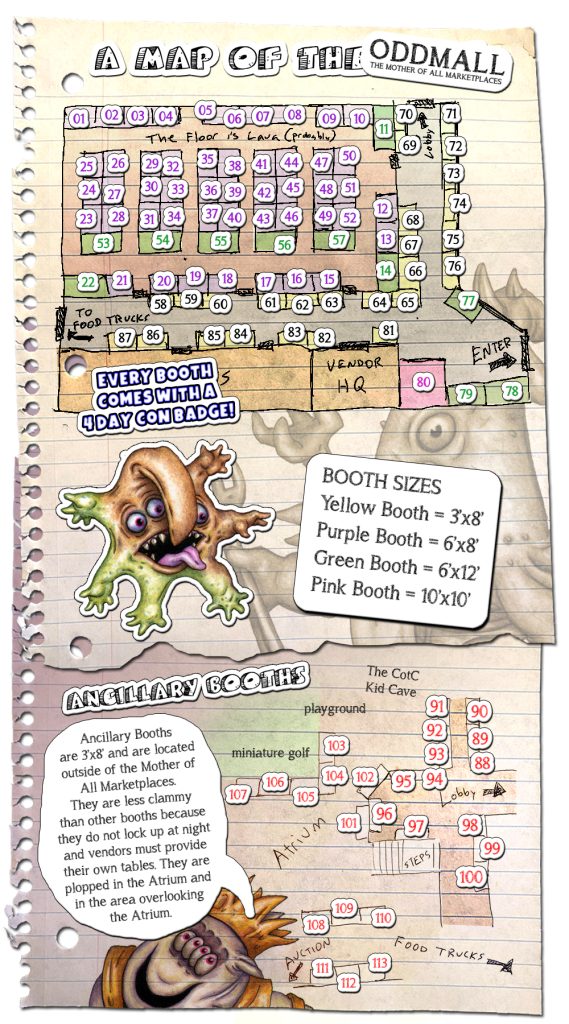 A MAP OF THE ODDMALL
THE MOTHER OF ALL MARKETPLACES
01 02 03 04 05 06 07 08 09 10
11 70 71
The Floor is Lava (probably)
Lobby
69 72
25 26 29 32 35 38 41 44 47 50
73
24 27 30 33 36 39 42 45 48 51
12 74
23 28 31 34 37 40 43 46 49 52
68
53 54 55 56 57
13 67 75
14 66 76
22 21 20 19 18 17 16 15
58 59 60 61 62 63 64 65
77
TO
FOOD TRUCKS
87 86 85 84 83 82 81
ENTER
VENDOR
HQ
S
80 79 78
EVERY BOOTH
COMES WITH A
4 DAY CON BADGE!
BOOTH SIZES
Yellow Booth = 3'x8'
Purple Booth = 6'x8'
Green Booth = 6'x12'
Pink Booth = 10'x10'
ANCILLARY BOOTHS
Ancillary Booths
are 3'x8' and are located
outside of the Mother of
All Marketplaces.
They are less clammy
than other booths because
they do not lock up at night
and vendors must provide
their own tables. They are
plopped in the Atrium and
in the area overlooking
the Atrium.
The CotC
Kid Cave
playground
miniature golf
91 90
92 89
93 88
103
104 102 95 94
107 106 105
Lobby
Atrium
101 96 97 98
STEPS
99
100
108 109 110
AUCTION
FOOD TRUCKS
111 112 113